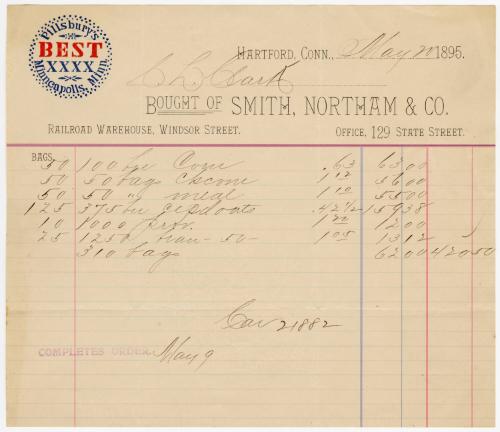 Pillsbury's
BEST
XXXX
Minneapolis, Minn.
HARTFORD, CONN., May 20 1895.
C L Clark
BOUGHT OF SMITH, NORTHAM & CO.
RAILROAD WAREHOUSE, WINDSOR STREET. OFFICE, 129 STATE STREET.
BAGS.
50 100 bu Corn .63 63 00
50 50 bags 1 12 56 00
50 50 " meal 1 10 55 00
125 375 bu oats .42 1/2 159 38
10 1000 1 20 12 00
25 1250 bran -50- 1 05 13 12
310 bags 62 00 420 50
Car 21882
COMPLETES ORDER. May 9